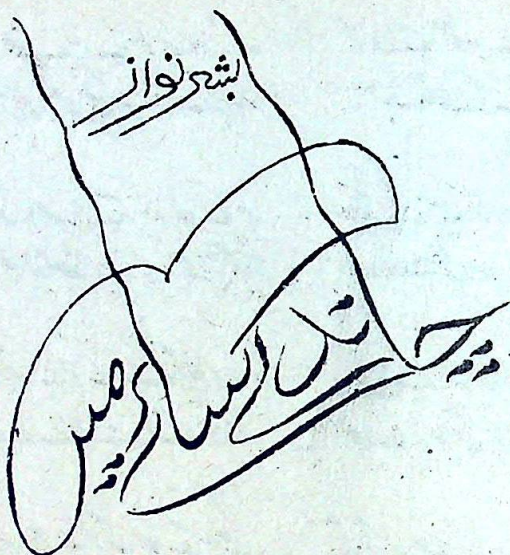 بشر نواز
چاند کے سائے میں